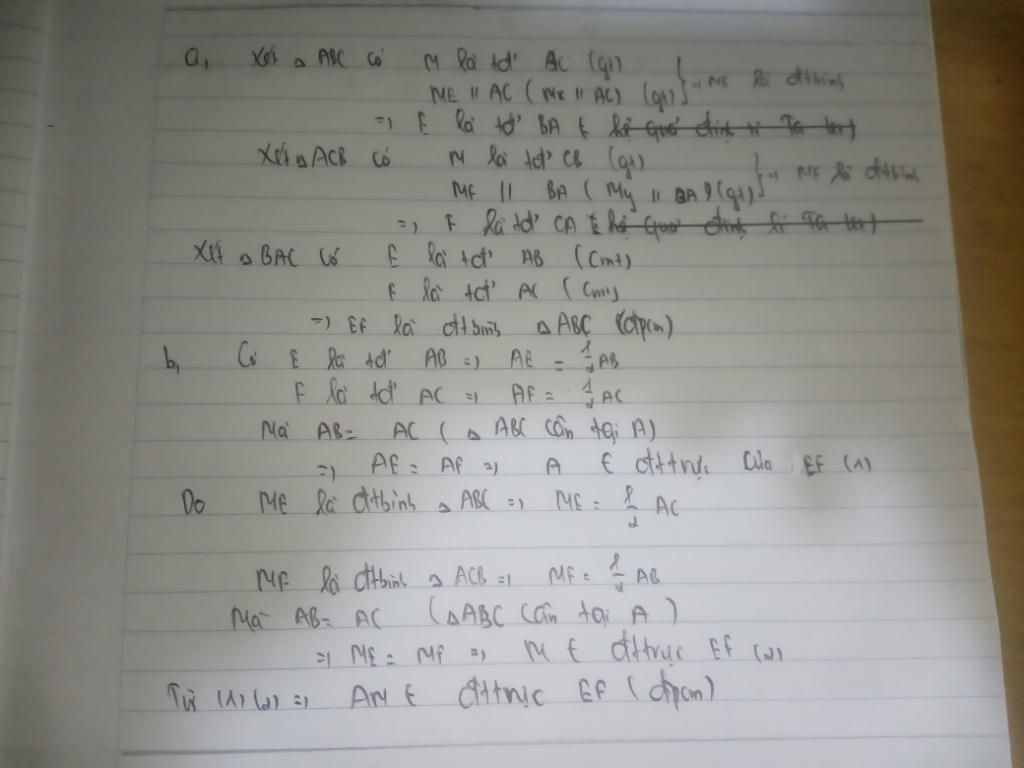 a, Xét △ ABC có M là tđ' BC (gt)
ME // AC (Mx // AC) (gt) } => ME là đttbình
=> E là tđ' BA ( hệ quả định lí Ta let)
Xét △ ACB có M là tđ' CB (gt)
MF // BA (My // BA) (gt) } => MF là đttbình
=> F là tđ' CA ( hệ quả định lí Ta let)
Xét △ BAC có E là tđ' AB (Cmt)
F là tđ' AC (Cmt)
=> EF là đttbình △ ABC (đpcm)
b, Có E là tđ' AB => AE = 1/2 AB
F là tđ' AC => AF = 1/2 AC
Mà AB = AC ( △ ABC cân tại A)
=> AE = AF => A ∈ đttrực của EF (1)
Do ME là đttbình △ ABC => ME = 1/2 AC
MF là đttbình △ ACB => MF = 1/2 AB
Mà AB = AC (△ABC cân tại A )
=> ME = MF => M ∈ đttrực EF (2)
Từ (1) (2) => AM ∈ đttrực EF (đpcm)